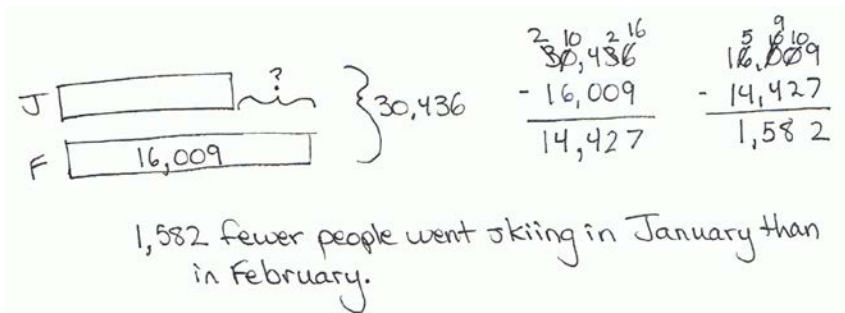 ?
J
} 30,436
F 16,009
2 10 2 16
30,436
- 16,009
14,427
9
5 10 10
16,009
- 14,427
1,582
1,582 fewer people went skiing in January than
in February.